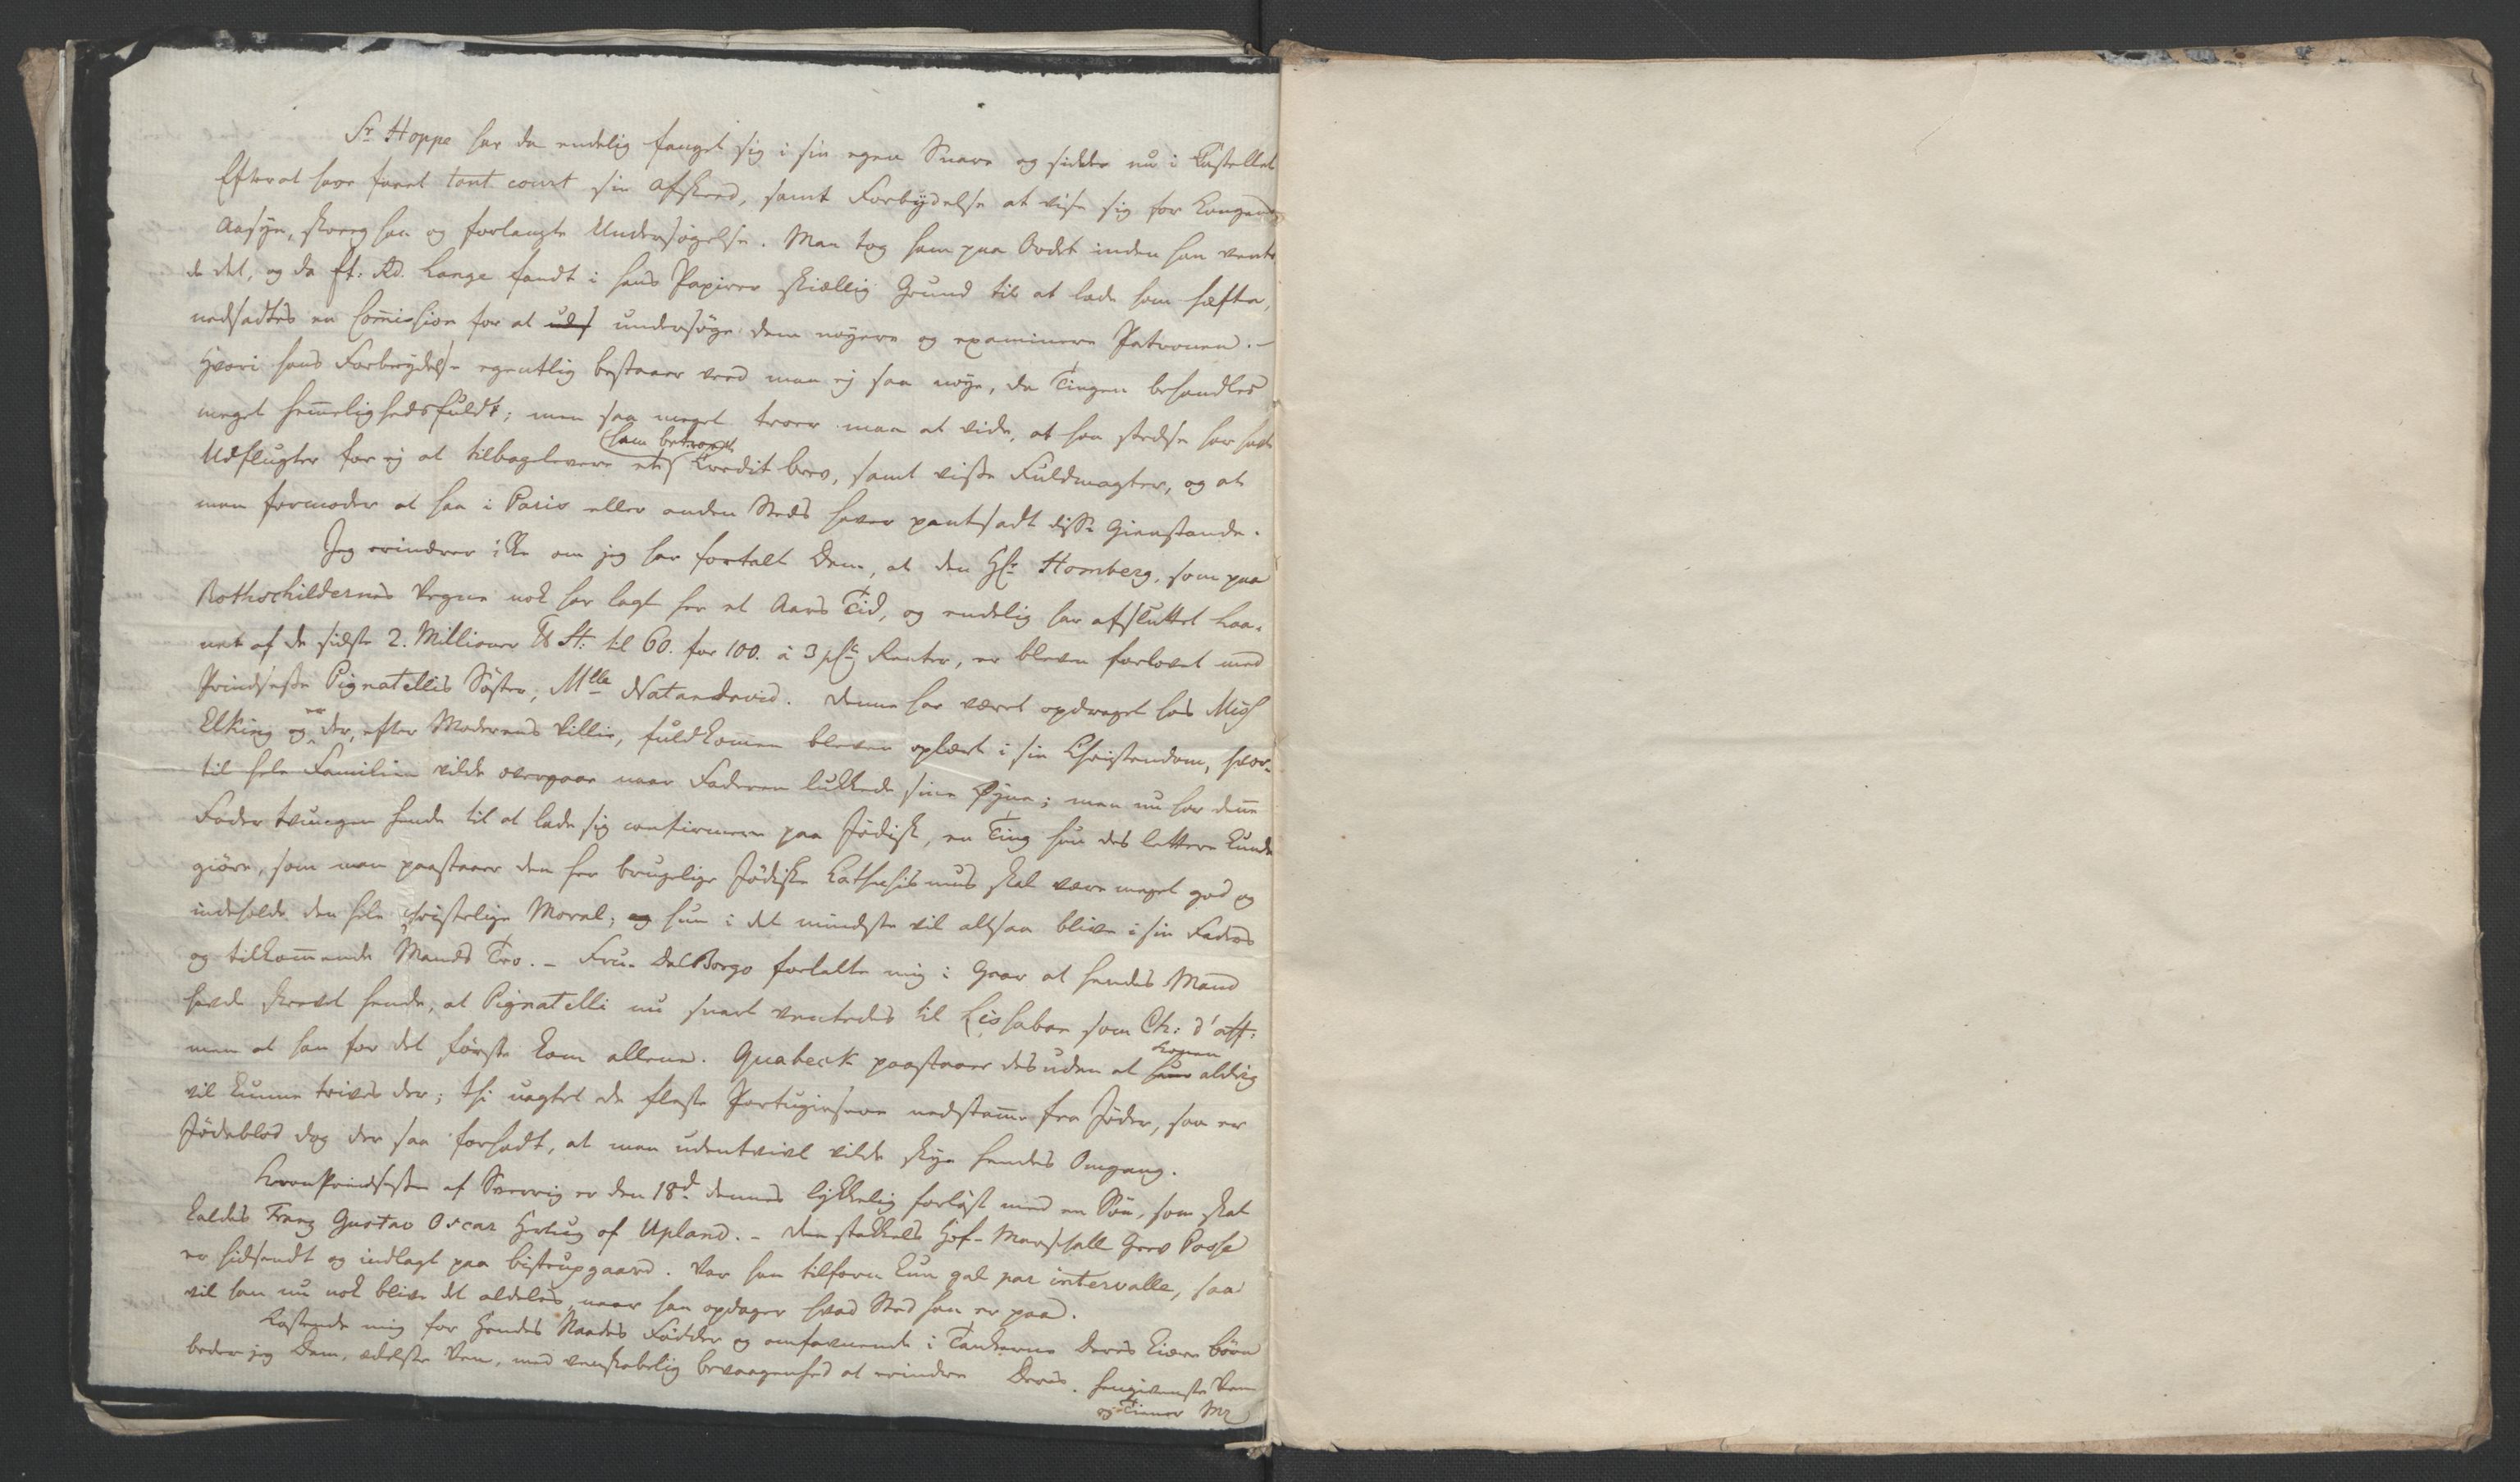 Sr Hoppe har da endelig fanget sig i sin egen Snare og sidder nu i Kastellet
Efterat have faaet tout court sin Afskeed, samt Forbydelse at vise sig for Kongens
Aasyn, skreeg han og forlangte Undersøgelse. Man tog ham paa Ordet inden han vente-
de det, og da Et: Rd. Lange fandt i hans Papirer skiællig Grund til at lade ham hæfte,
nedsadtes en Com̅ission for at uds undersøge dem nøyere og examinere Patronen. –
Hvori hans Forbrydelse egentlig bestaaer veed man ej saa nøye, da Tingen behandles
meget hem̅elighedsfuldt; men saa meget troer man at vide, at han stedse har havt
Udflugter for ej at tilbagelevere et ham betroet Kredit brev, samt visse Fuldmagter, og at
man formoder at han i Paris eller anden Steds haver pantsadt disse Gienstande.
Jeg erindrer ikke om jeg har fortalt Dem, at den Hr Homberg, som paa
Rothschildernes Vegne nok har lagt her et Aars Tid, og endelig har afsluttet Laa-
net af de sidste 2. Millioner ℔ St: til 60. for 100. à 3 pCt Renter, er bleven forlovet med
Prindsesse Pignatellis Søster, Mlle Natandavid. Denne har været opdraget hos Miss
Elking og er der, efter Moderens Villie, fuldkom̅en bleven oplært i sin Christendom, hvor-
til hele Familien vilde overgaae naar Faderen lukkede sine Øyne; men nu har den̅e
Fader tvungen hende til at lade sig confirmere paa Jødisk, en Ting hun des lettere kunde
giøre, som man paastaaer den her brugelige Jødiske Kathechismus skal være meget god og
indeholde den hele christelige Moral; og hun i det mindste vil altsaa blive i sin Faders
og tilkom̅ende Mands Tro. – Fru Dal Borgo fortalte mig i Gaar at hendes Mand
havde skrevet hende, at Pignatelli nu snart ventedes til Lissabon som Ch: d'aff:
men at han for det første kom allene. Quabeck paastaaer desuden at hun Konen aldrig
vil kunne trives der; thi uagtet de fleste Portugisere nedstam̅e fra Jøder, saa er
Jødeblod dog der saa forhadt, at man udentvivl vilde skye hendes Omgang.
KronPrindsessen af Sverrig er den 18d dennes lykkelig forløst med en Søn, som skal
kaldes Franz Gustav Oscar Hertug af Upland. – Den stakkels Hof-Marschall Grev Posse
er hidsendt og indlagt paa Bistrupgaard. Var han tilforn kun gal par intervalle, saa
vil han nu nok blive det aldeles, naar han opdager hvad Sted han er paa.
Kastende mig for Hendes Naades Fødder og omfavnende i Tankerne Deres kiære Børn
beder jeg Dem, ædelste Ven, med venskabelig bevaagenhed at erindre Deres hengivenste Ven
og Tiener Mz